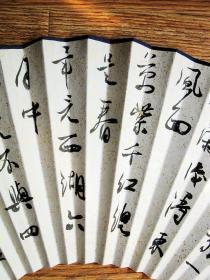 得東
風面
萬紫千紅總
是春
畢竟西湖六
月中
光不與四